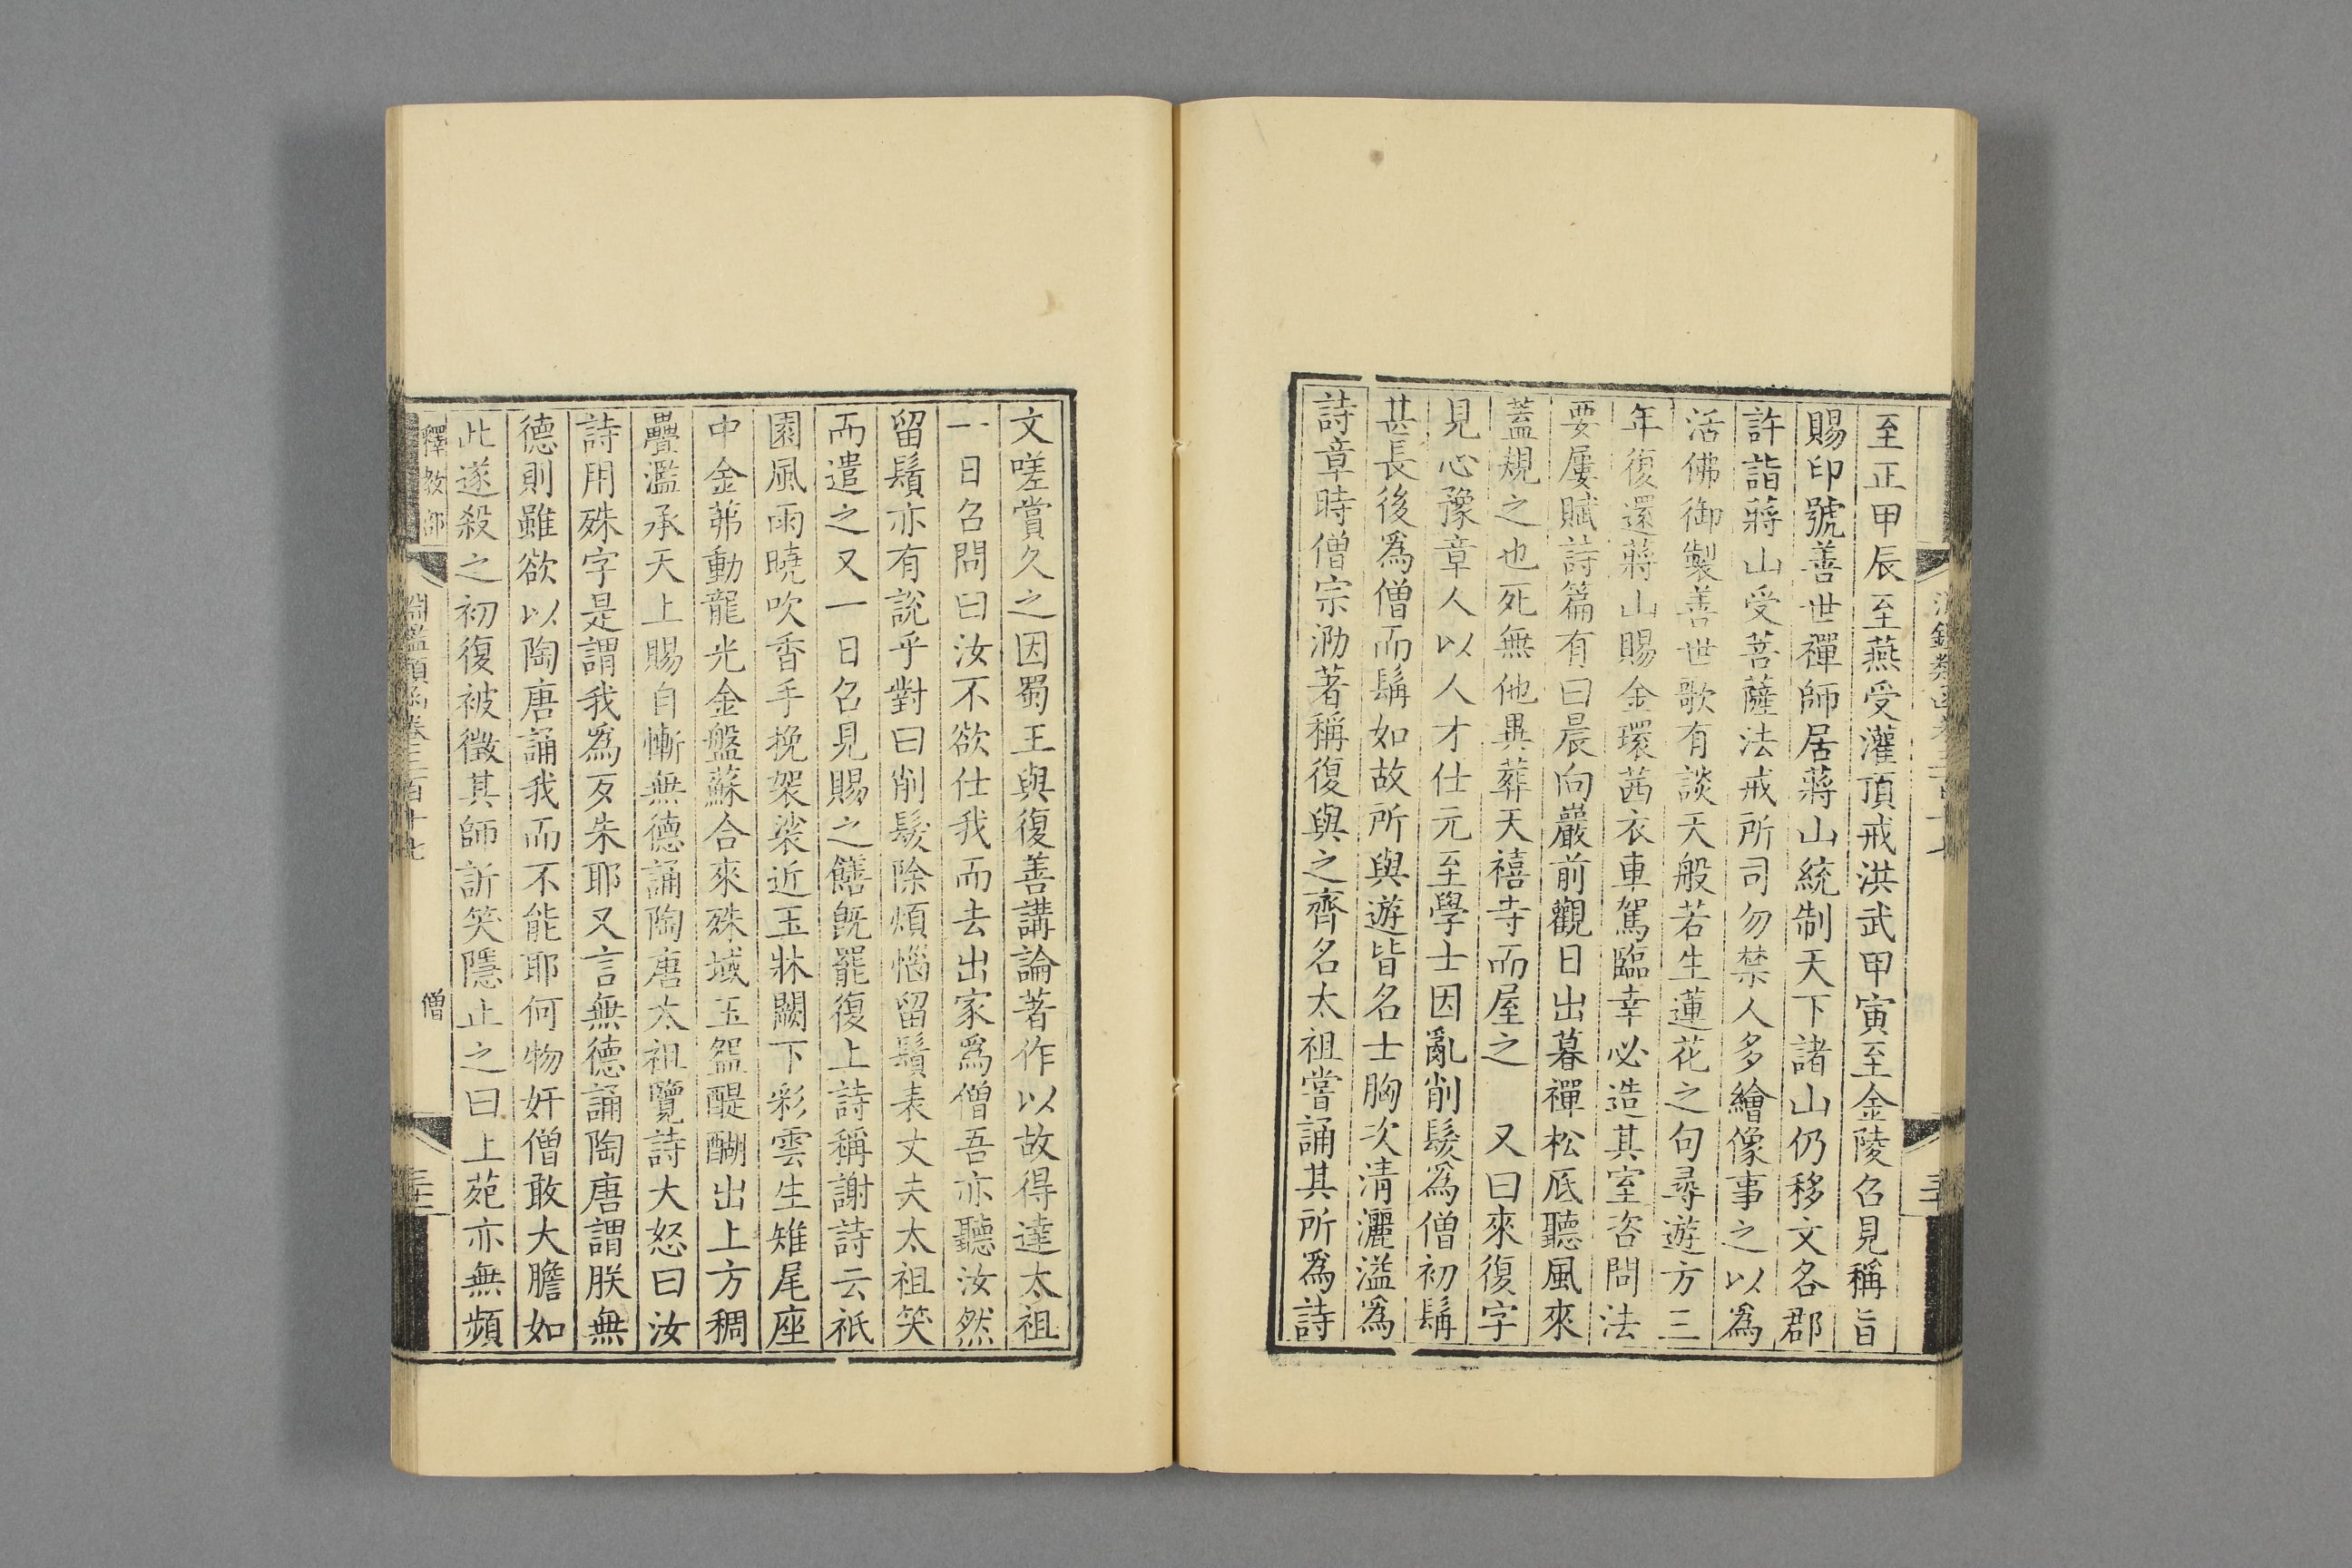 至正甲辰至燕受灌頂戒洪武甲寅至金陵召見稱旨
賜印號善世禪師居蔣山統制天下諸山仍移文各郡
許詣蔣山受菩薩法戒所司勿禁人多繪像事之以爲
活佛御製善世歌有談天般若生蓮花之句尋遊方三
年復還蔣山賜金環茜衣車駕臨幸必造其室咨問法
要屢賦詩篇有曰晨向巖前觀日出暮禪松底聽風來
蓋規之也死無他異葬天禧寺而屋之 又曰來復字
見心豫章人以人才仕元至學士因亂削髮爲僧初鬅
甚長後爲僧而鬅如故所與遊皆名士胸次清灑溢爲
詩章時僧宗泐著稱復與之齊名太祖嘗誦其所爲詩
文嗟賞久之因蜀王與復善講論著作以故得達太祖
一日召問曰汝不欲仕我而去出家爲僧吾亦聽汝然
留鬚亦有說乎對曰削髮除煩惱留鬚表丈夫太祖笑
而遣之又一日召見賜之饍旣罷復上詩稱謝詩云祇
園風雨曉吹香手挽袈裟近玉牀闕下彩雲生雉尾座
中金茀動龍光金盤蘇合來殊域玉盌醍醐出上方稠
疊濫承天上賜自慚無德誦陶唐太祖覽詩大怒曰汝
詩用殊字是謂我爲歹朱耶又言無德誦陶唐謂朕無
德則雖欲以陶唐誦我而不能耶何物奸僧敢大膽如
此遂殺之初復被徵其師訢笑隱止之曰上苑亦無頻
釋教部 淵鑑類函卷三百十七 僧